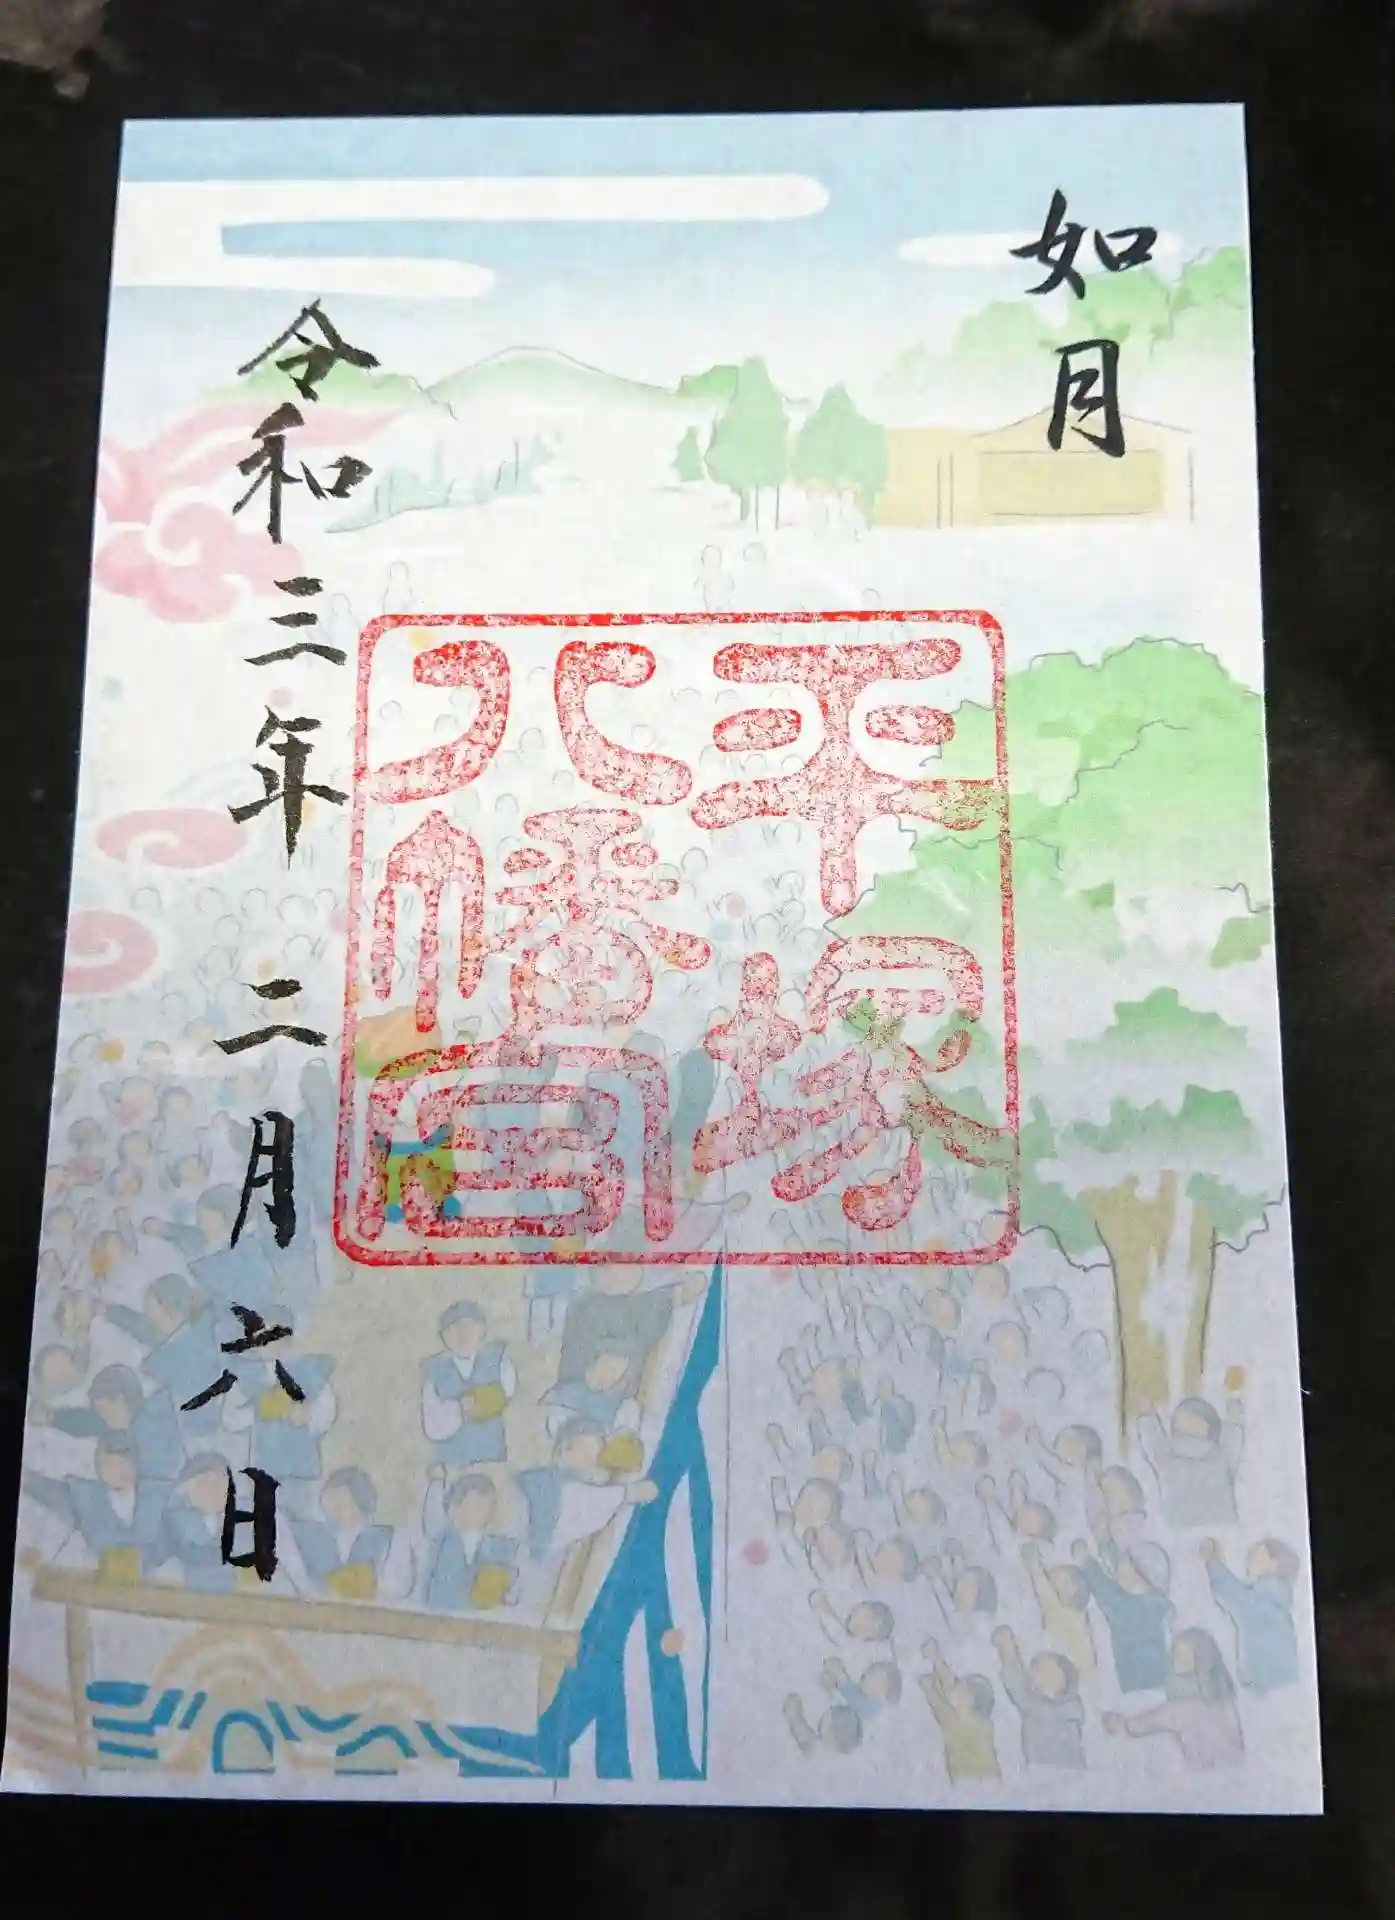 如月
平塚
八幡宮
令和三年二月六日